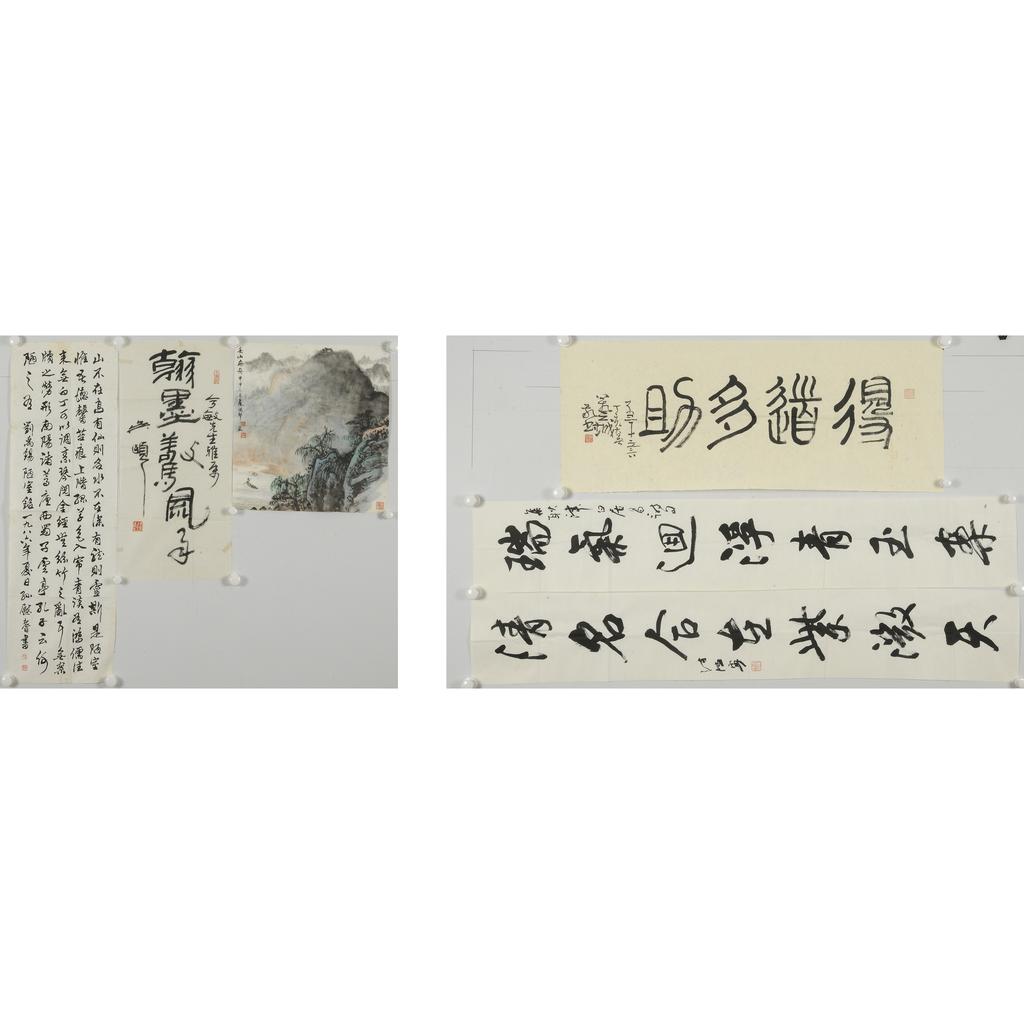 山不在高有仙則名水不在深有龍則靈斯是陋室
惟吾德馨苔痕上階綠草色入帘青談笑有鴻儒往
来無白丁可以調素琴閱金經無絲竹之亂耳無案
牘之勞形南陽諸葛廬西蜀子雲亭孔子云何
陋之有 劉禹錫陋室銘一九八六年夏日孫書
今敏先生雅屬
翰墨
得道多助
瑞氣迴浮青玉案
清名合在紫微天